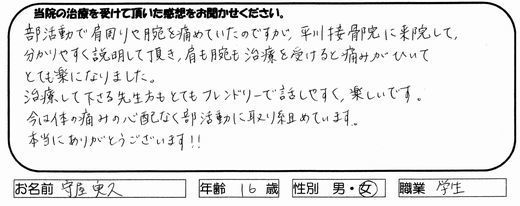 当院の治療を受けて頂いた感想をお聞かせください。
部活動で肩回りや腕を痛めていたのですが、平川接骨院に来院して、
分かりやすく説明して頂き、肩も腕も治療を受けると痛みがひいて
とても楽になりました。
治療して下さる先生方もとてもフレンドリーで話しやすく、楽しいです。
今は体の痛みの心配なく部活動に取り組めています。
本当にありがとうございます!!
お名前 守屋 久 年齢 16 歳 性別 男・女 職業 学生